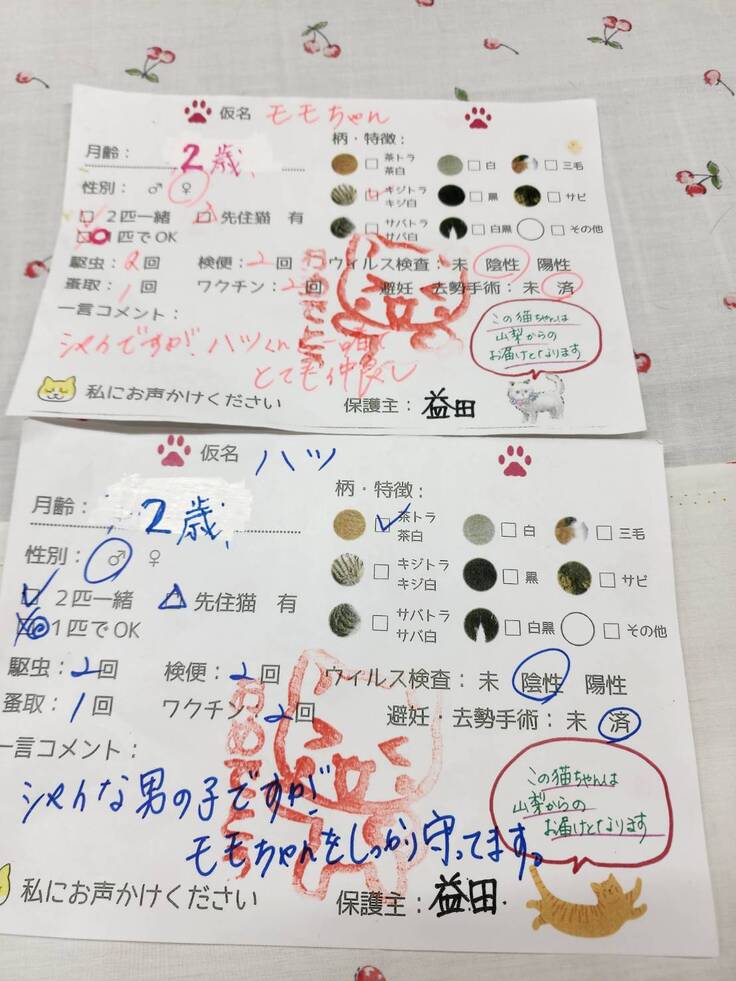 仮名 モモちゃん
月齢： 2歳
柄・特徴：
茶トラ 茶白
白
三毛
性別： ♂ ♀
キジトラ キジ白
黒
サビ
2匹一緒 先住猫 有
1匹でOK
サバトラ サバ白
白黒
その他
駆虫：2回 検便：2回 ウィルス検査：未 陰性 陽性
蚤取：1回 ワクチン：2回 避妊・去勢手術：未 済
一言コメント：
シャイですが、ハツくんと一緒で
とても仲良し
この猫ちゃんは
山梨からの
お届けとなります
私にお声かけください 保護主：益田
仮名 ハツ
月齢： 2歳
柄・特徴：
茶トラ 茶白
白
三毛
性別： ♂ ♀
キジトラ キジ白
黒
サビ
2匹一緒 先住猫 有
1匹でOK
サバトラ サバ白
白黒
その他
駆虫：2回 検便：2回 ウィルス検査：未 陰性 陽性
蚤取：1回 ワクチン：2回 避妊・去勢手術：未 済
一言コメント：
シャイな男の子ですが、
モモちゃんをしっかり守ってます。
この猫ちゃんは
山梨からの
お届けとなります
私にお声かけください 保護主：益田